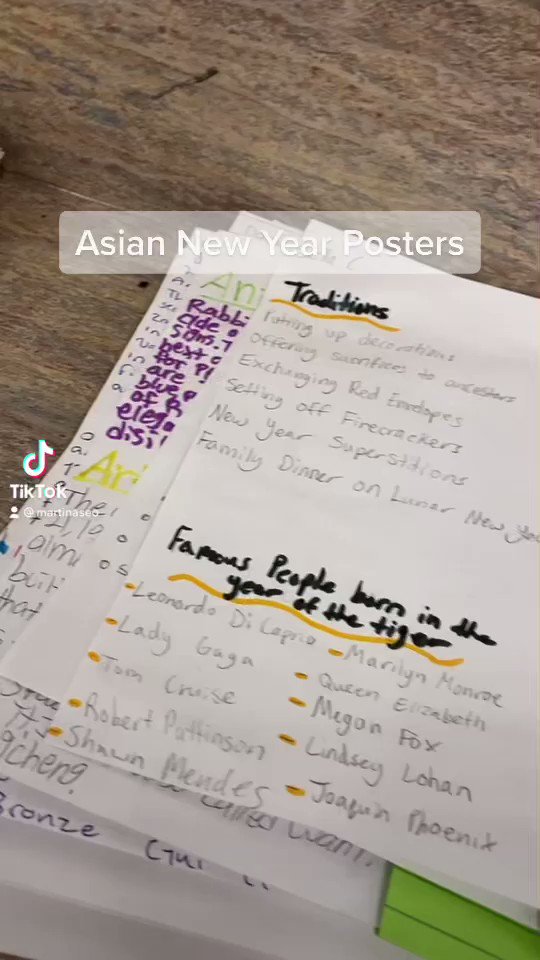 Asian New Year Posters
Traditions
Putting up decorations
Offering sacrifices to ancestors
Exchanging Red Envelopes
Setting off Firecrackers
New Year Superstitions
Family Dinner on Lunar New Yea
Famous People born in the
year of the tiger
- Leonardo Di Caprio
- Lady Gaga
- Tom Cruise
- Robert Pattinson
- Shawn Mendes
- Marilyn Monroe
- Queen Elizabeth
- Megan Fox
- Lindsey Lohan
- Joaquin Phoenix
Ani
Rabbi
best
for
are
blue
of
eleg
Ari
that
Bronze
TikTok
@martinaseo